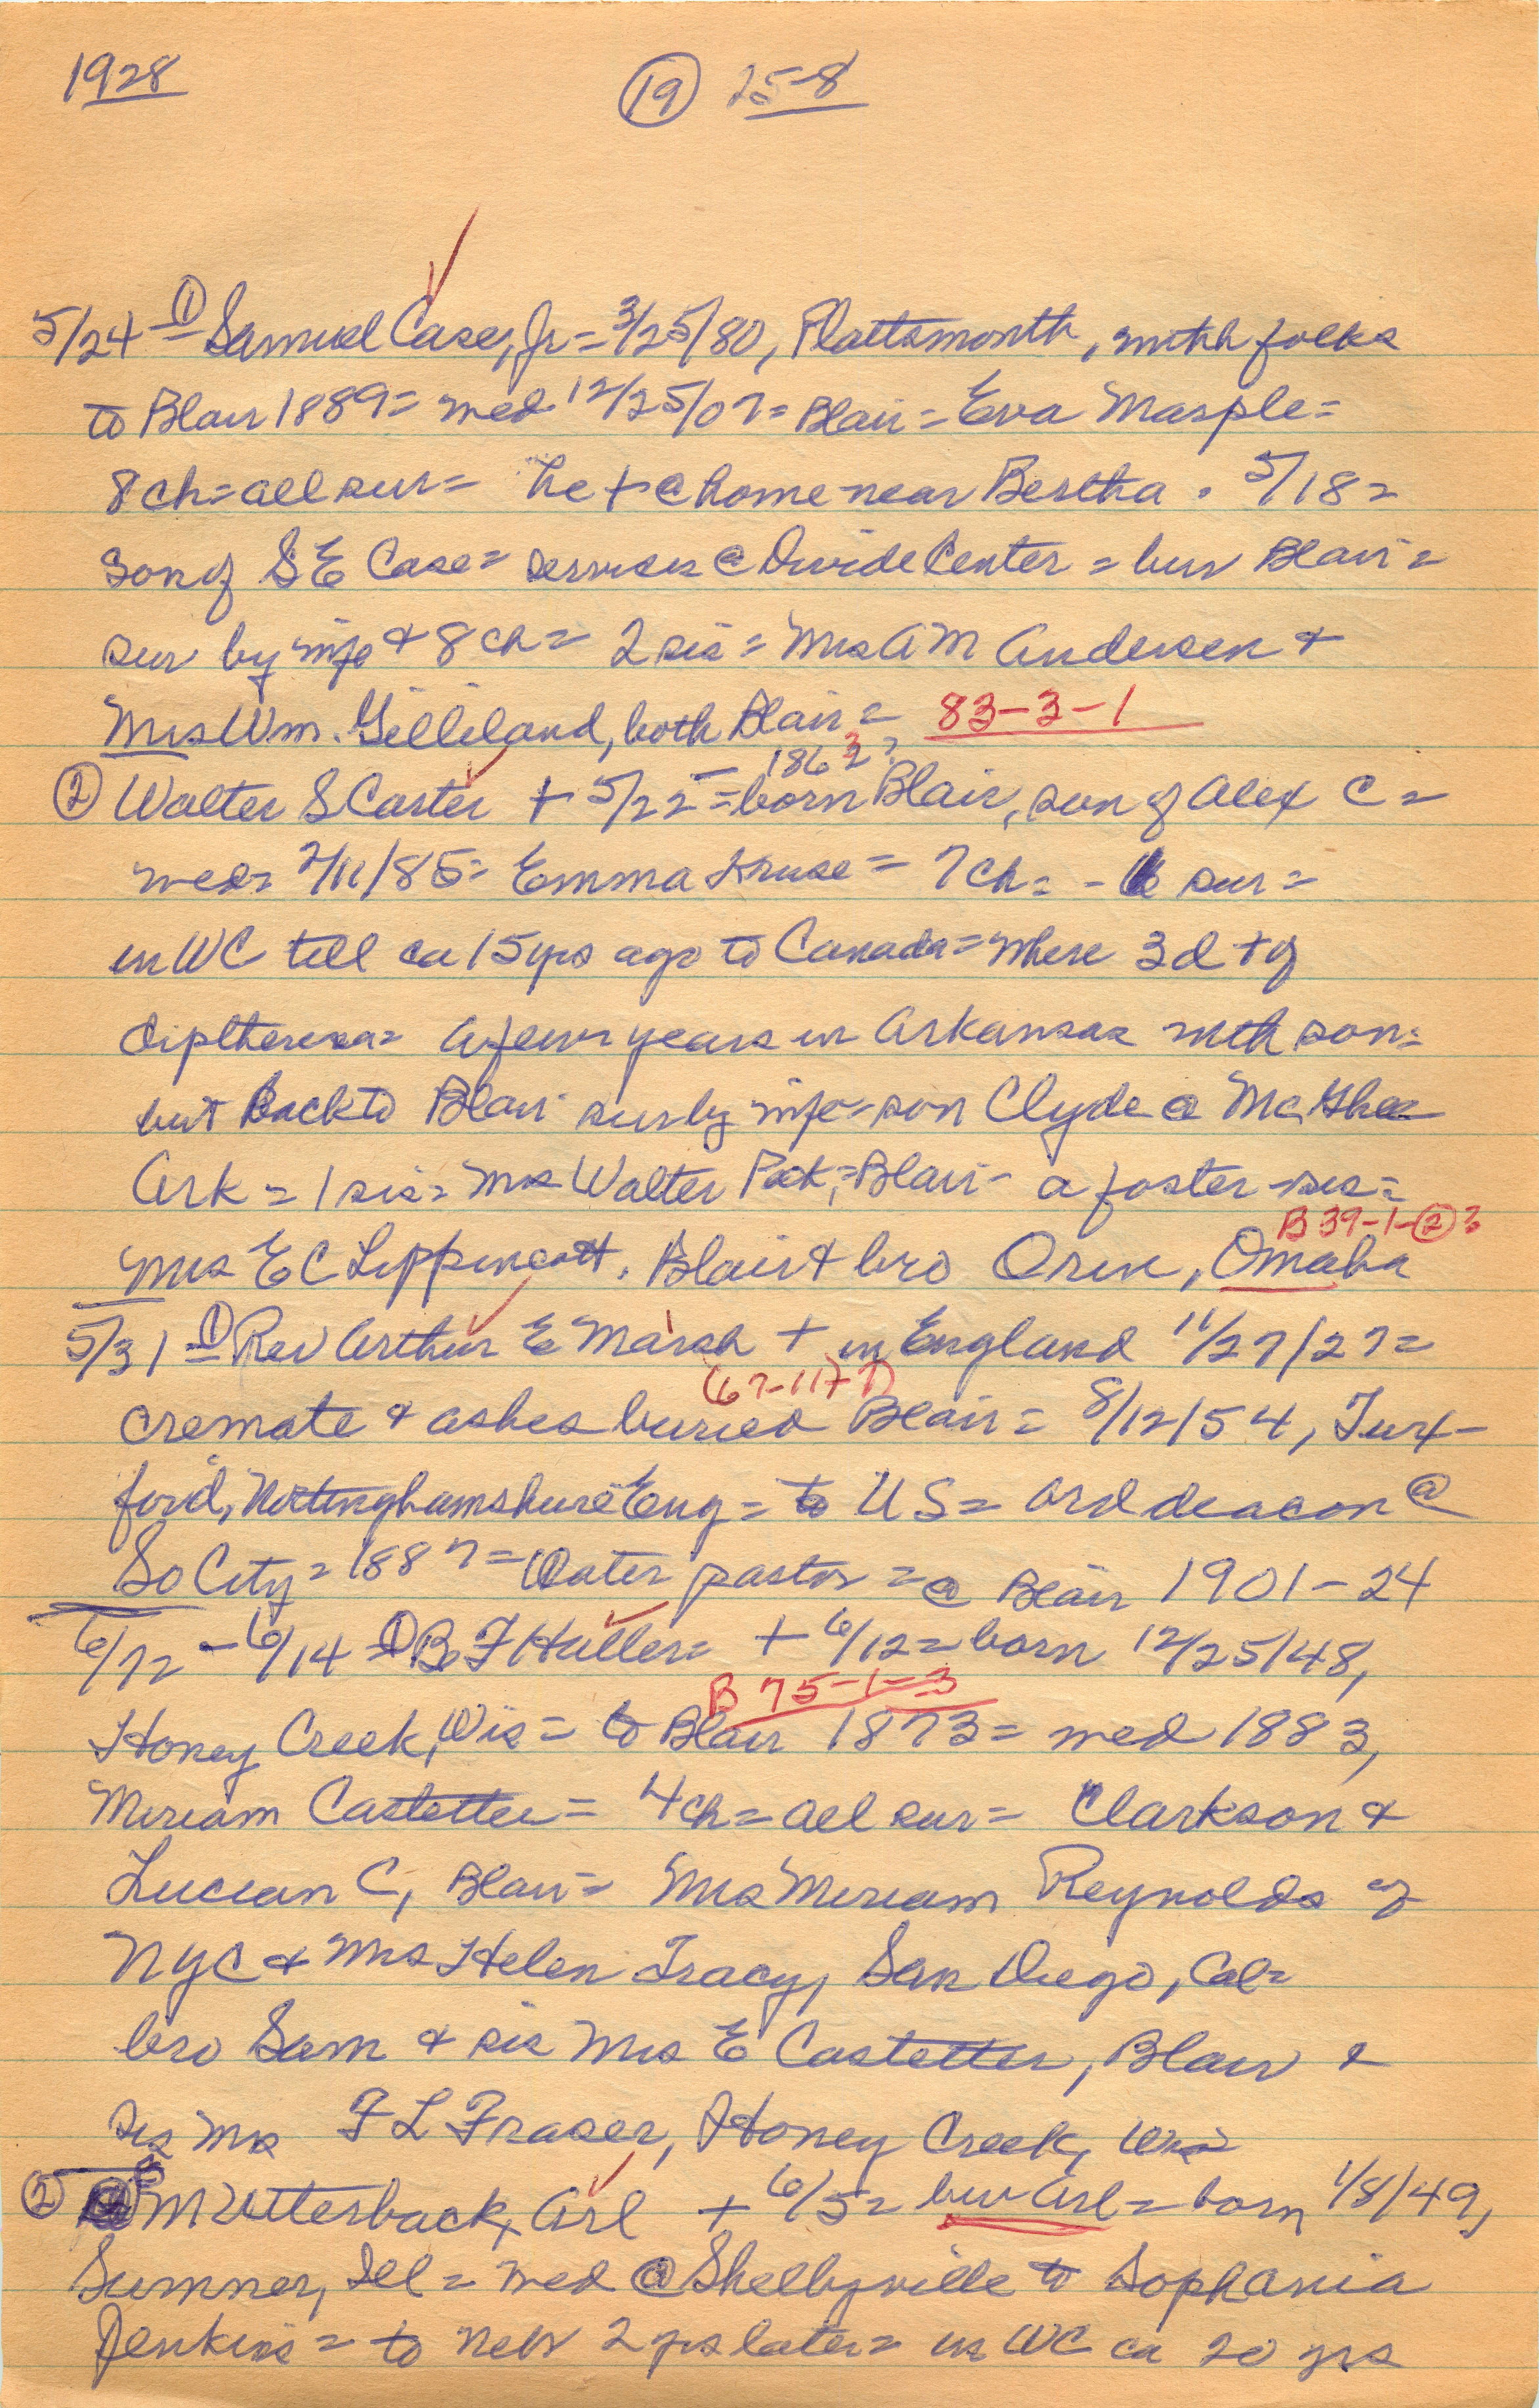 1928 (19) 25-8
5/24 - (1) Samuel Case, Jr = 3/25/80, Plattsmonth, with folks
to Blair 1889 = med 12/25/07 = Blair = Eva Masple =
8 ch = all sur = he + @ home near Bertha . 5/18 =
son of S E Case = services @ Divide Center = bur Blair =
sur by wife & 8 ch = 2 sis = Mrs A M Andersen +
Mrs Wm. Gilliland, both Blair = 83-3-1
1862 3 ?
(2) Walter S Carter + 5/22 = born Blair, son of Alex C =
med = 2/11/85 = Emma Kruse = 7 ch = - 6 sur =
in WC till ca 15 yrs ago to Canada = where 3 d + of
diptheria = a few years in Arkansas with son =
but back to Blair sur by wife = son Clyde @ McGhee
Ark = 1 sis = Mrs Walter Peck, = Blair - a foster - sis =
B 39-1-(2) 3
Mrs E C Lippincott, Blair + bro Orin, Omaha
5/31 (1) Rev Arthur E Marsh + in England 11/27/27 =
(67-11)+7)
cremate & ashes buried Blair = 8/12/54, Tux-
ford, Nottinghamshire Eng = to US = ord deacon @
So City = 1887 = later pastor = @ Blair 1901-24
6/12 - 6/14 = (1) B F Haller = + 6/12 = born 12/25/48,
B 75-1-3
Honey Creek, Wis = to Blair 1873 = med 1883,
Miriam Castetter = 4 ch = all sur = Clarkson &
Lucian C, Blair = Mrs Miriam Reynolds of
NYC & Mrs Helen Tracy, San Diego, Cal =
bro Sam & sis Mrs E Castetter, Blair &
sis Mrs F L Fraser, Honey Creek, Wis
(2) M Utterback, Arl + 6/5 = bur Arl = born 1/8/49,
Sumner, Ill = med @ Shelbyville to Sophania
Jenkins = to Neb 2 yrs later = in WC ca 20 yrs